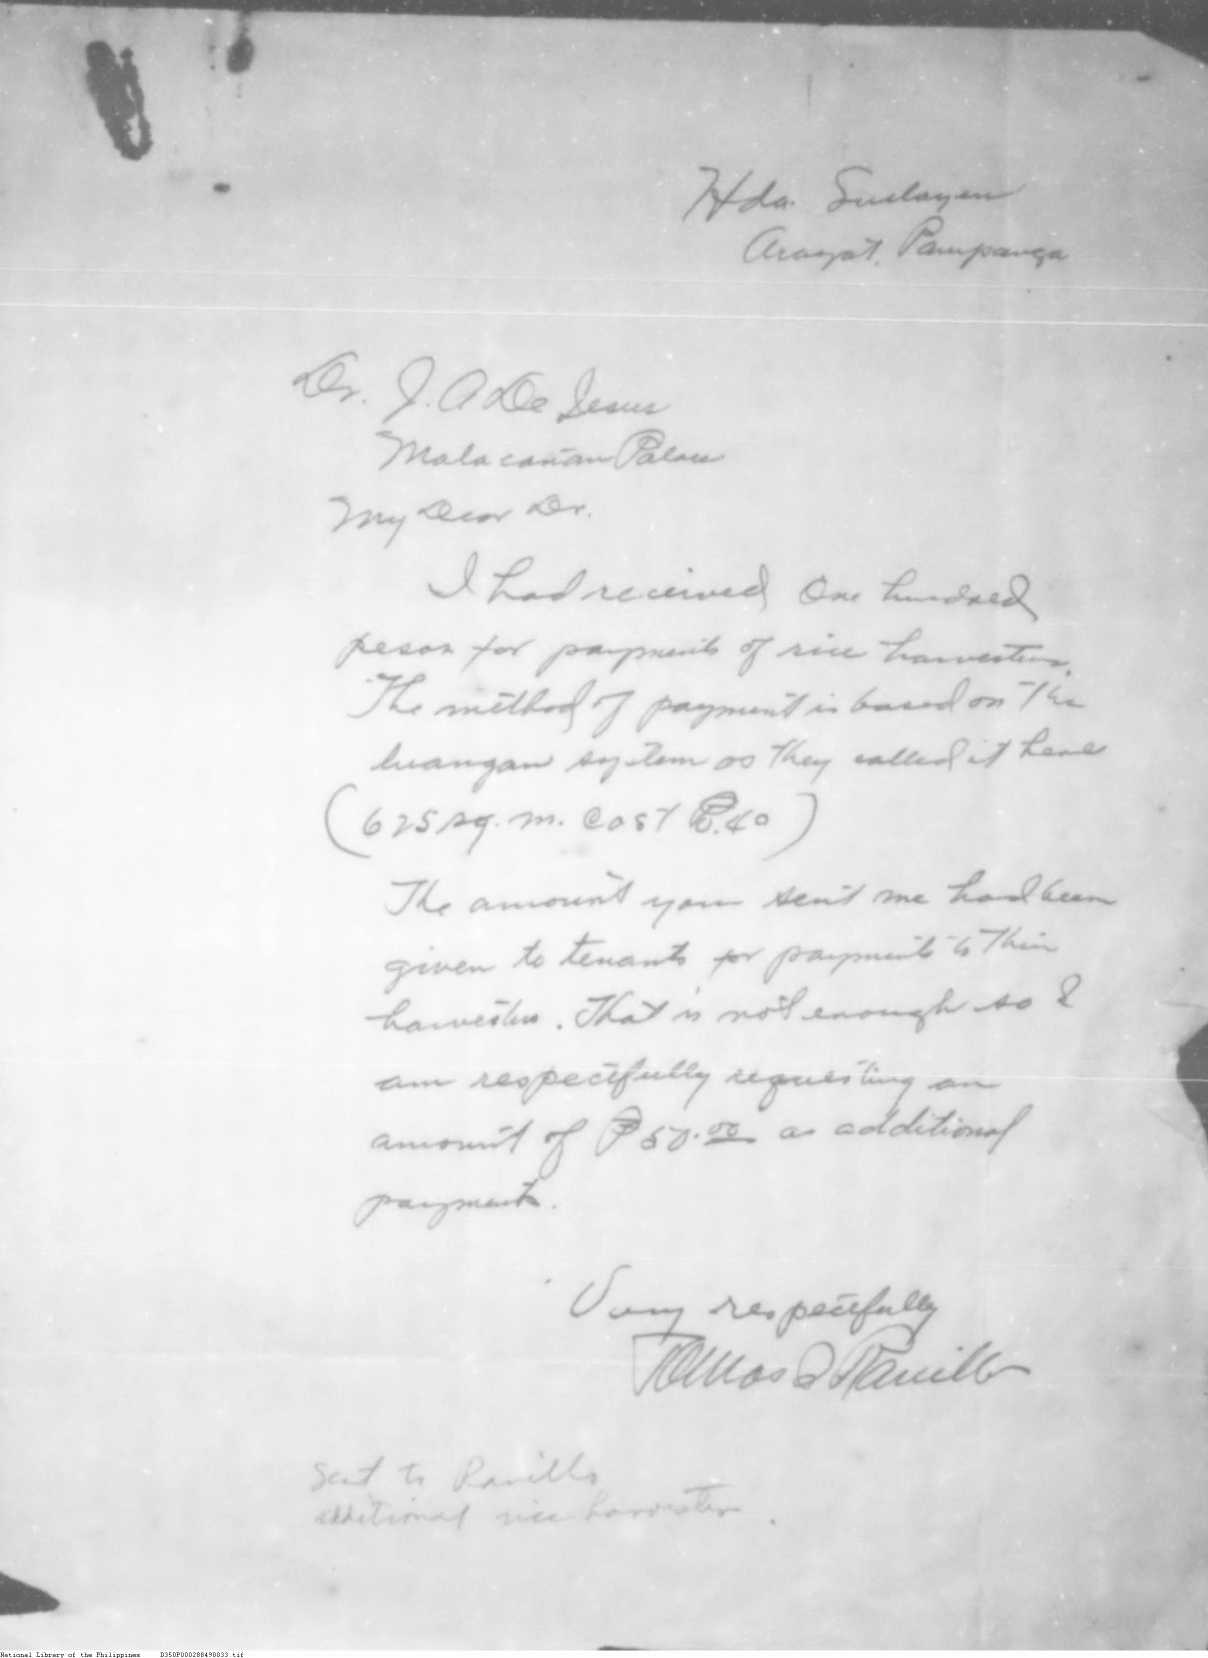 Hda.
Arayat, Pampanga
Dr. J. A De Jesus
Malacañan Palace
My Dear Dr.
I had received One hundred
pesos for payments of rice harvesters.
The method of payment is based on the
luangan system as they called it here
(625 sq. m. cost ₱0.40)
The amount you sent me had been
given to tenants for payments to their
harvesters. That is not enough so I
am respectfully requesting an
amount of ₱50.00 as additional
payments.
Very respectfully
Tomas
Sent to
additional rice harvesters.
National Library of the Philippines D350P000288498833.tif